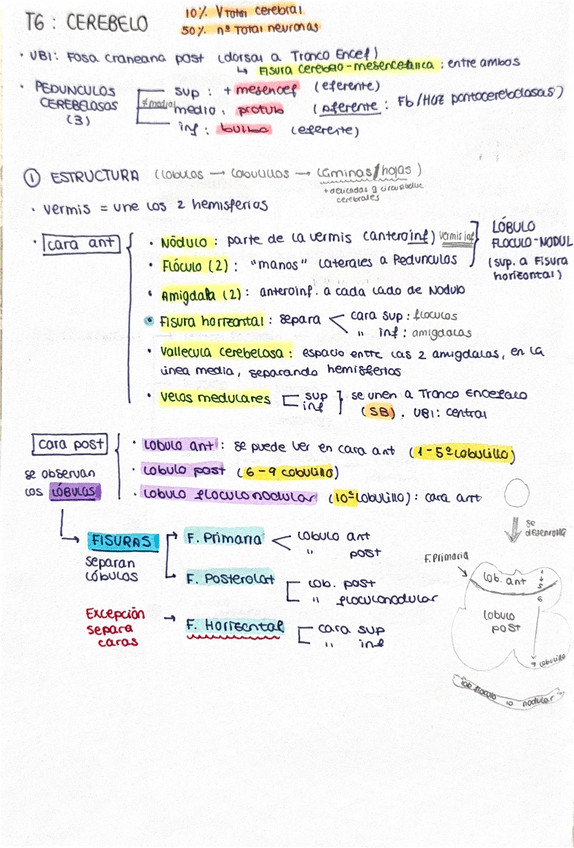 T6: CEREBELO
10% V Total cerebral
50% nº Total neuronas
· UBI: Fosa craneana post (dorsal a Tronco Encef)
↳ Fisura cerebro-mesencefálica: entre ambos
· PEDUNCULOS CEREBELOSOS (3)
sup: + mesencef (eferente)
medio: protub (aferente: Fb/Haz pontocerebelosas)
inf: bulbo (eferente)
① ESTRUCTURA (Lobulos → Lobulillos → Laminas/hojas)
+ delicadas q circunvoluc cerebrales
· vermis = une los 2 hemisferios
· cara ant
· Nódulo: parte de la vermis (anteroinf) vermis inf
· Flóculo (2): "manos" laterales a Pedunculos
LÓBULO FLOCULO-NODUL (sup. a Fisura horizontal)
· Amigdala (2): anteroinf. a cada lado de Nodulo
· Fisura horizontal: separa < cara sup: floculos
" inf: amigdalas
· Vallecula cerebelosa: espacio entre las 2 amigdalas, en la
linea media, separando hemisferios
· Velos medulares [ sup inf ] se unen a Tronco Encefalo
(SB), UBI: central
cara post
se observan los LÓBULOS
· Lobulo ant: se puede ver en cara ant (1-5º lobulillo)
· Lobulo post (6-9 lobulillo)
· Lobulo floculonodular (10º lobulillo): cara ant
→ FISURAS
separan lóbulos
F. Primaria < Lobulo ant
" post
F. Posterolat [ lob. post
" floculonodular
Excepción separa caras
→ F. Horizontal [ cara sup
" inf
se desenrolla
F. Primaria
lob. ant
1
5
6
Lobulo post
9 lobulillo
lob floculo nodular
10